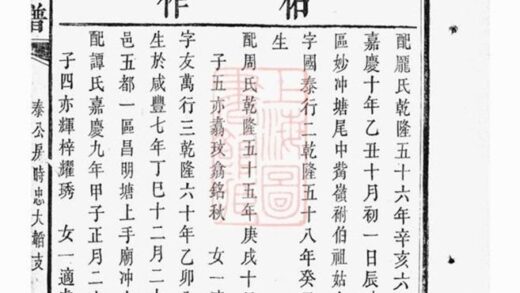 配龎氏乾隆五十六年辛亥六
嘉慶十年乙丑十月初一日辰
區妙冲塘尾中觜嶺祔伯祖姑
字國泰行二乾隆五十八年癸
生
配周氏乾隆五十五年庚戌十
子五亦翥玟翕銘秋 女一適
字友萬行三乾隆六十年乙卯
生於咸豐七年丁巳十二月二十
邑五都一區昌明塘上手廟冲
配譚氏嘉慶九年甲子正月二十
子四亦輝梓耀琇 女一適
譜
泰公房時忠大 支
上海圖
書館藏